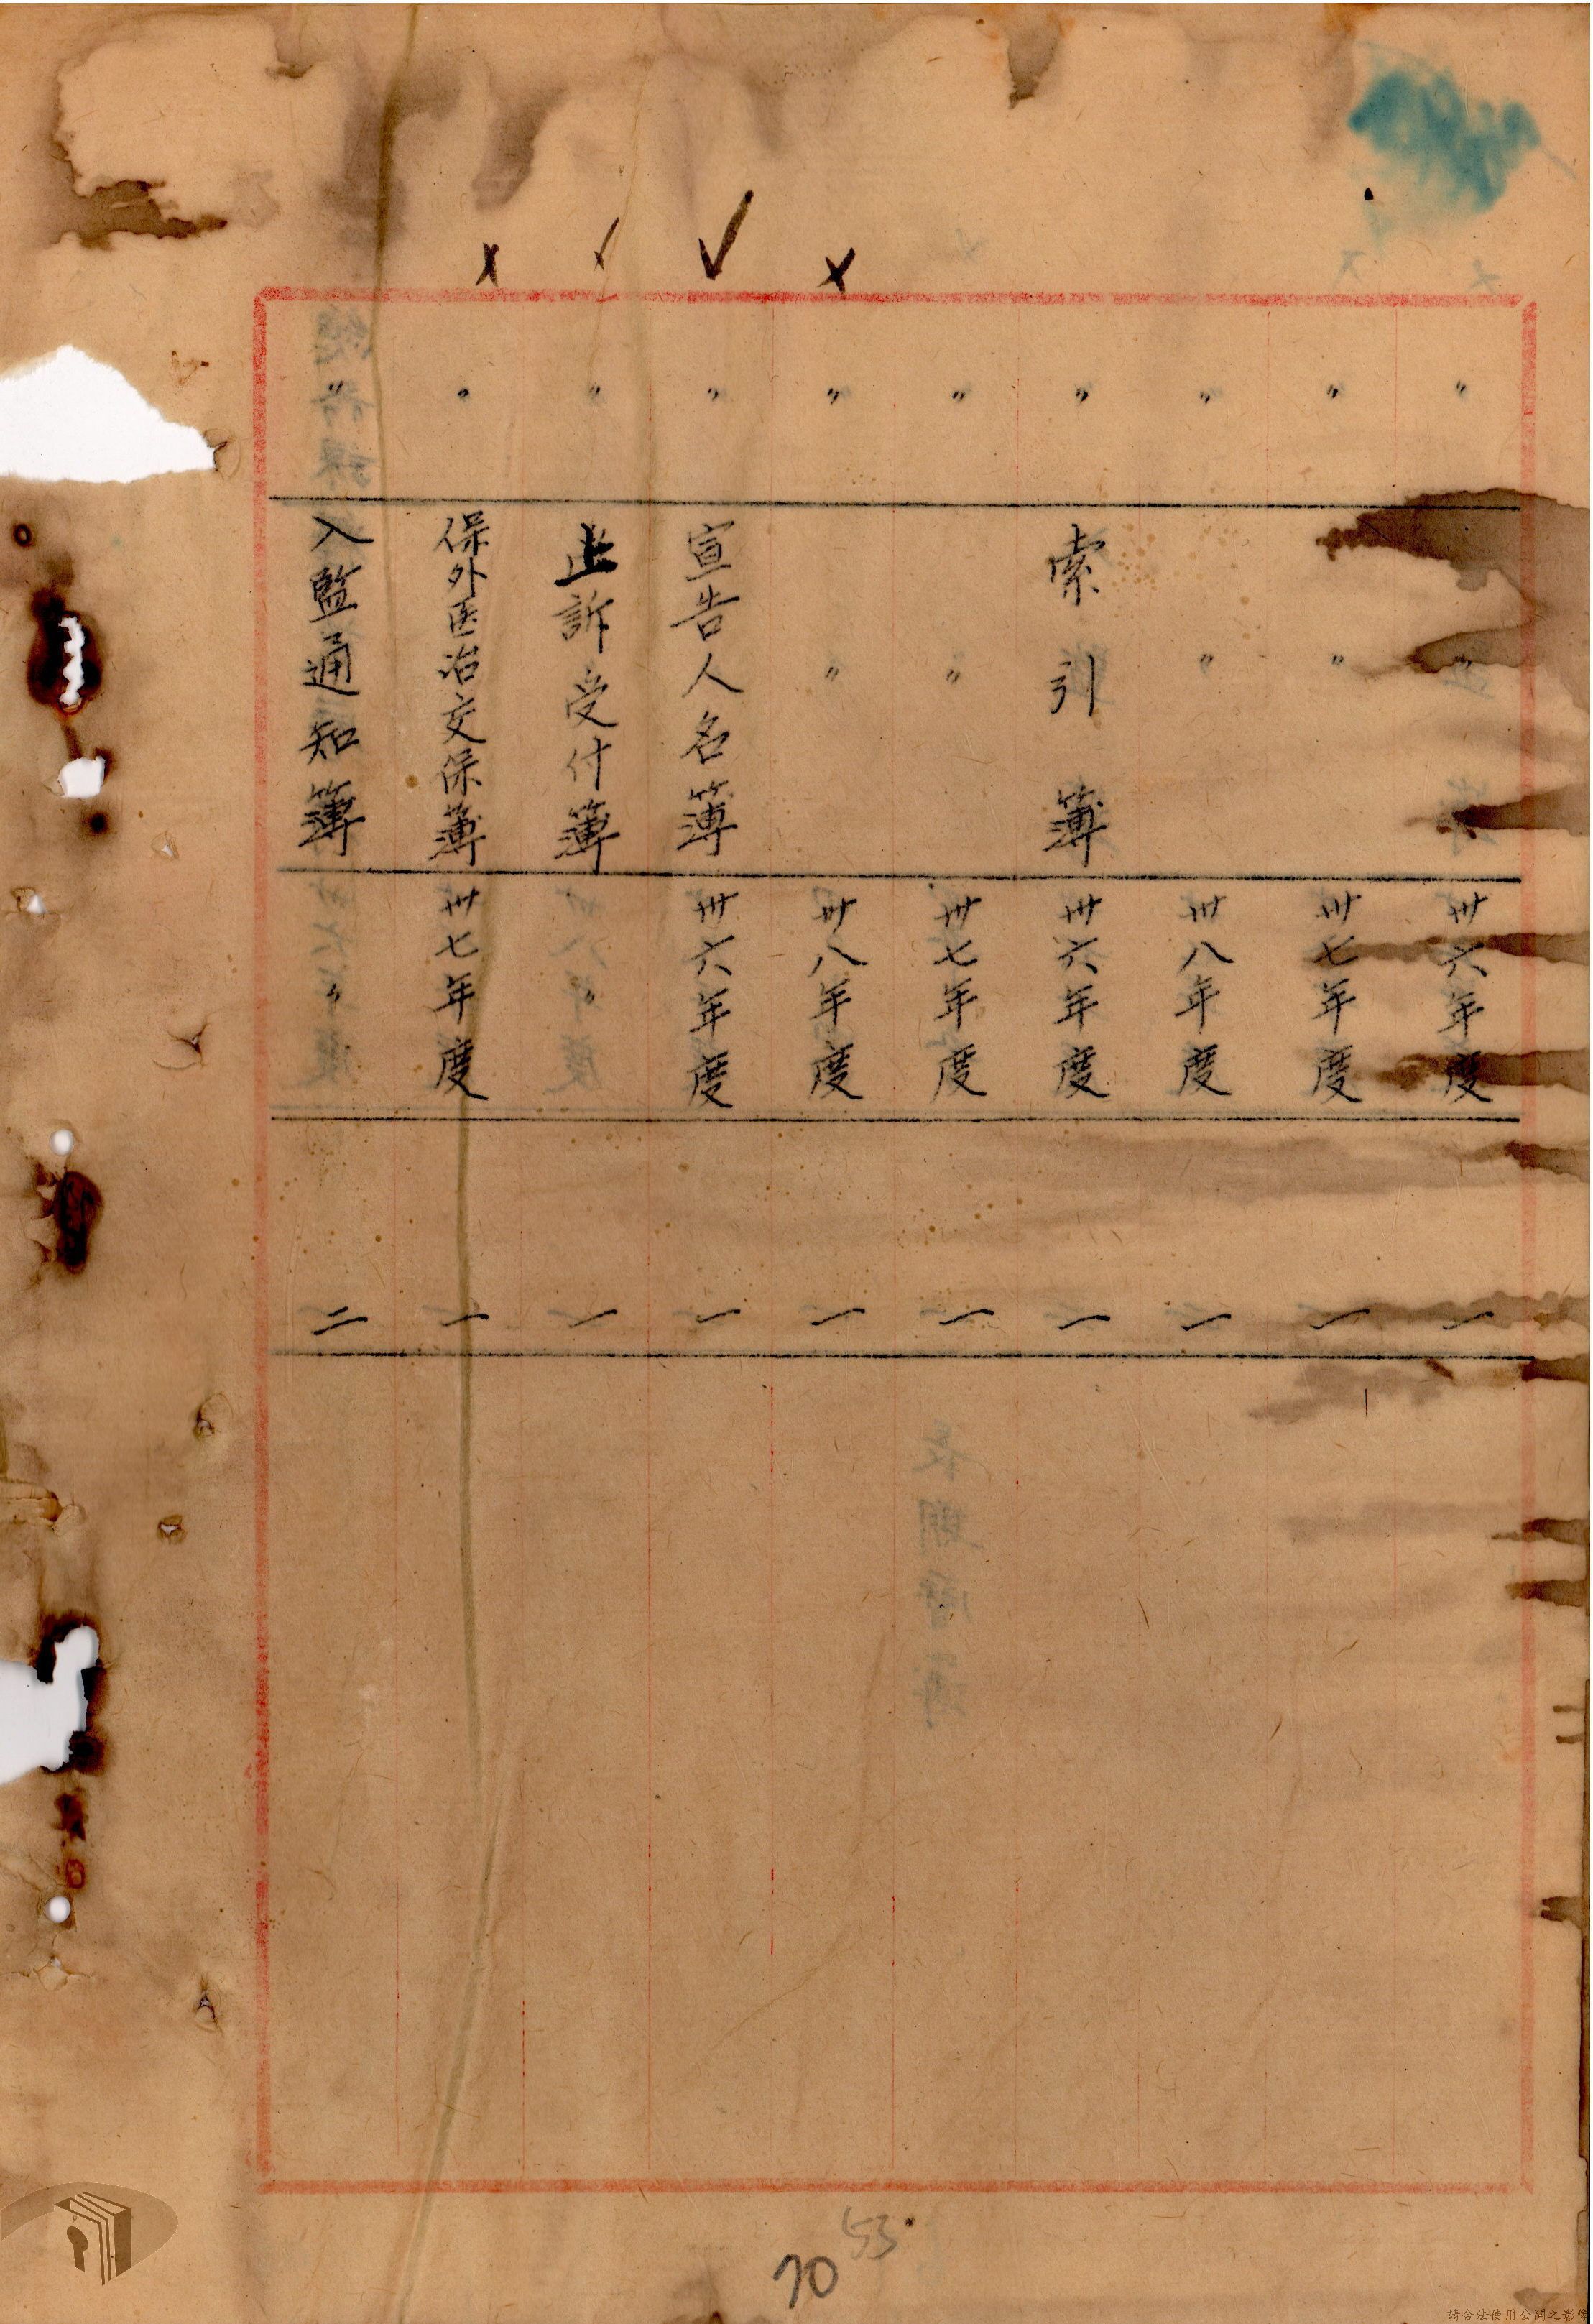 〃 〃 卅六年度 一
〃 〃 卅七年度 一
〃 〃 卅八年度 一
〃 索引簿 卅六年度 一
〃 〃 卅七年度 一
〃 〃 卅八年度 一
〃 宣告人名簿 卅六年度 一
〃 訴受付簿 〃 一
〃 保外医治交保簿 卅七年度 一
〃 入監通知簿 〃 二
53
70
請合法使用公開之影像